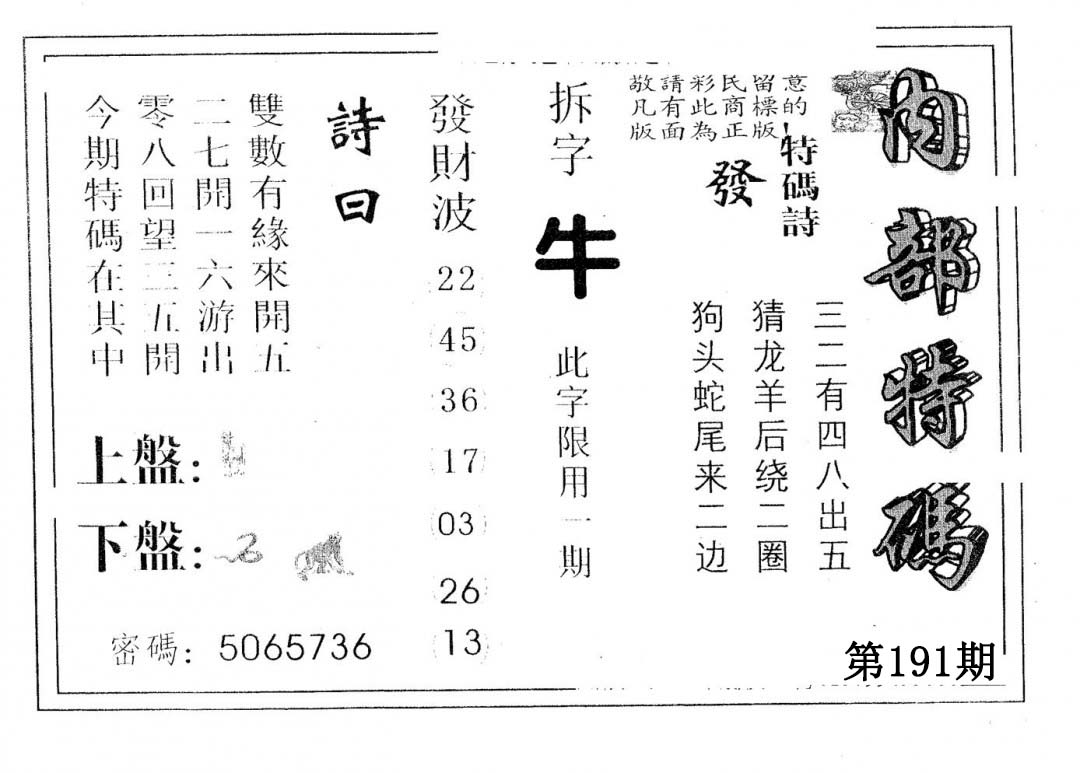 內部特碼
第191期
敬請彩民留意
凡有此商標的
版面為正版!
特碼詩
發
三二有四八出五
猜龙羊后绕二圈
狗头蛇尾来二边
拆字
牛
此字限用一期
發財波
22
45
36
17
03
26
13
詩曰
雙數有緣來開五
二七開一六游出
零八回望三五開
今期特碼在其中
上盤:
下盤:
密碼: 5065736